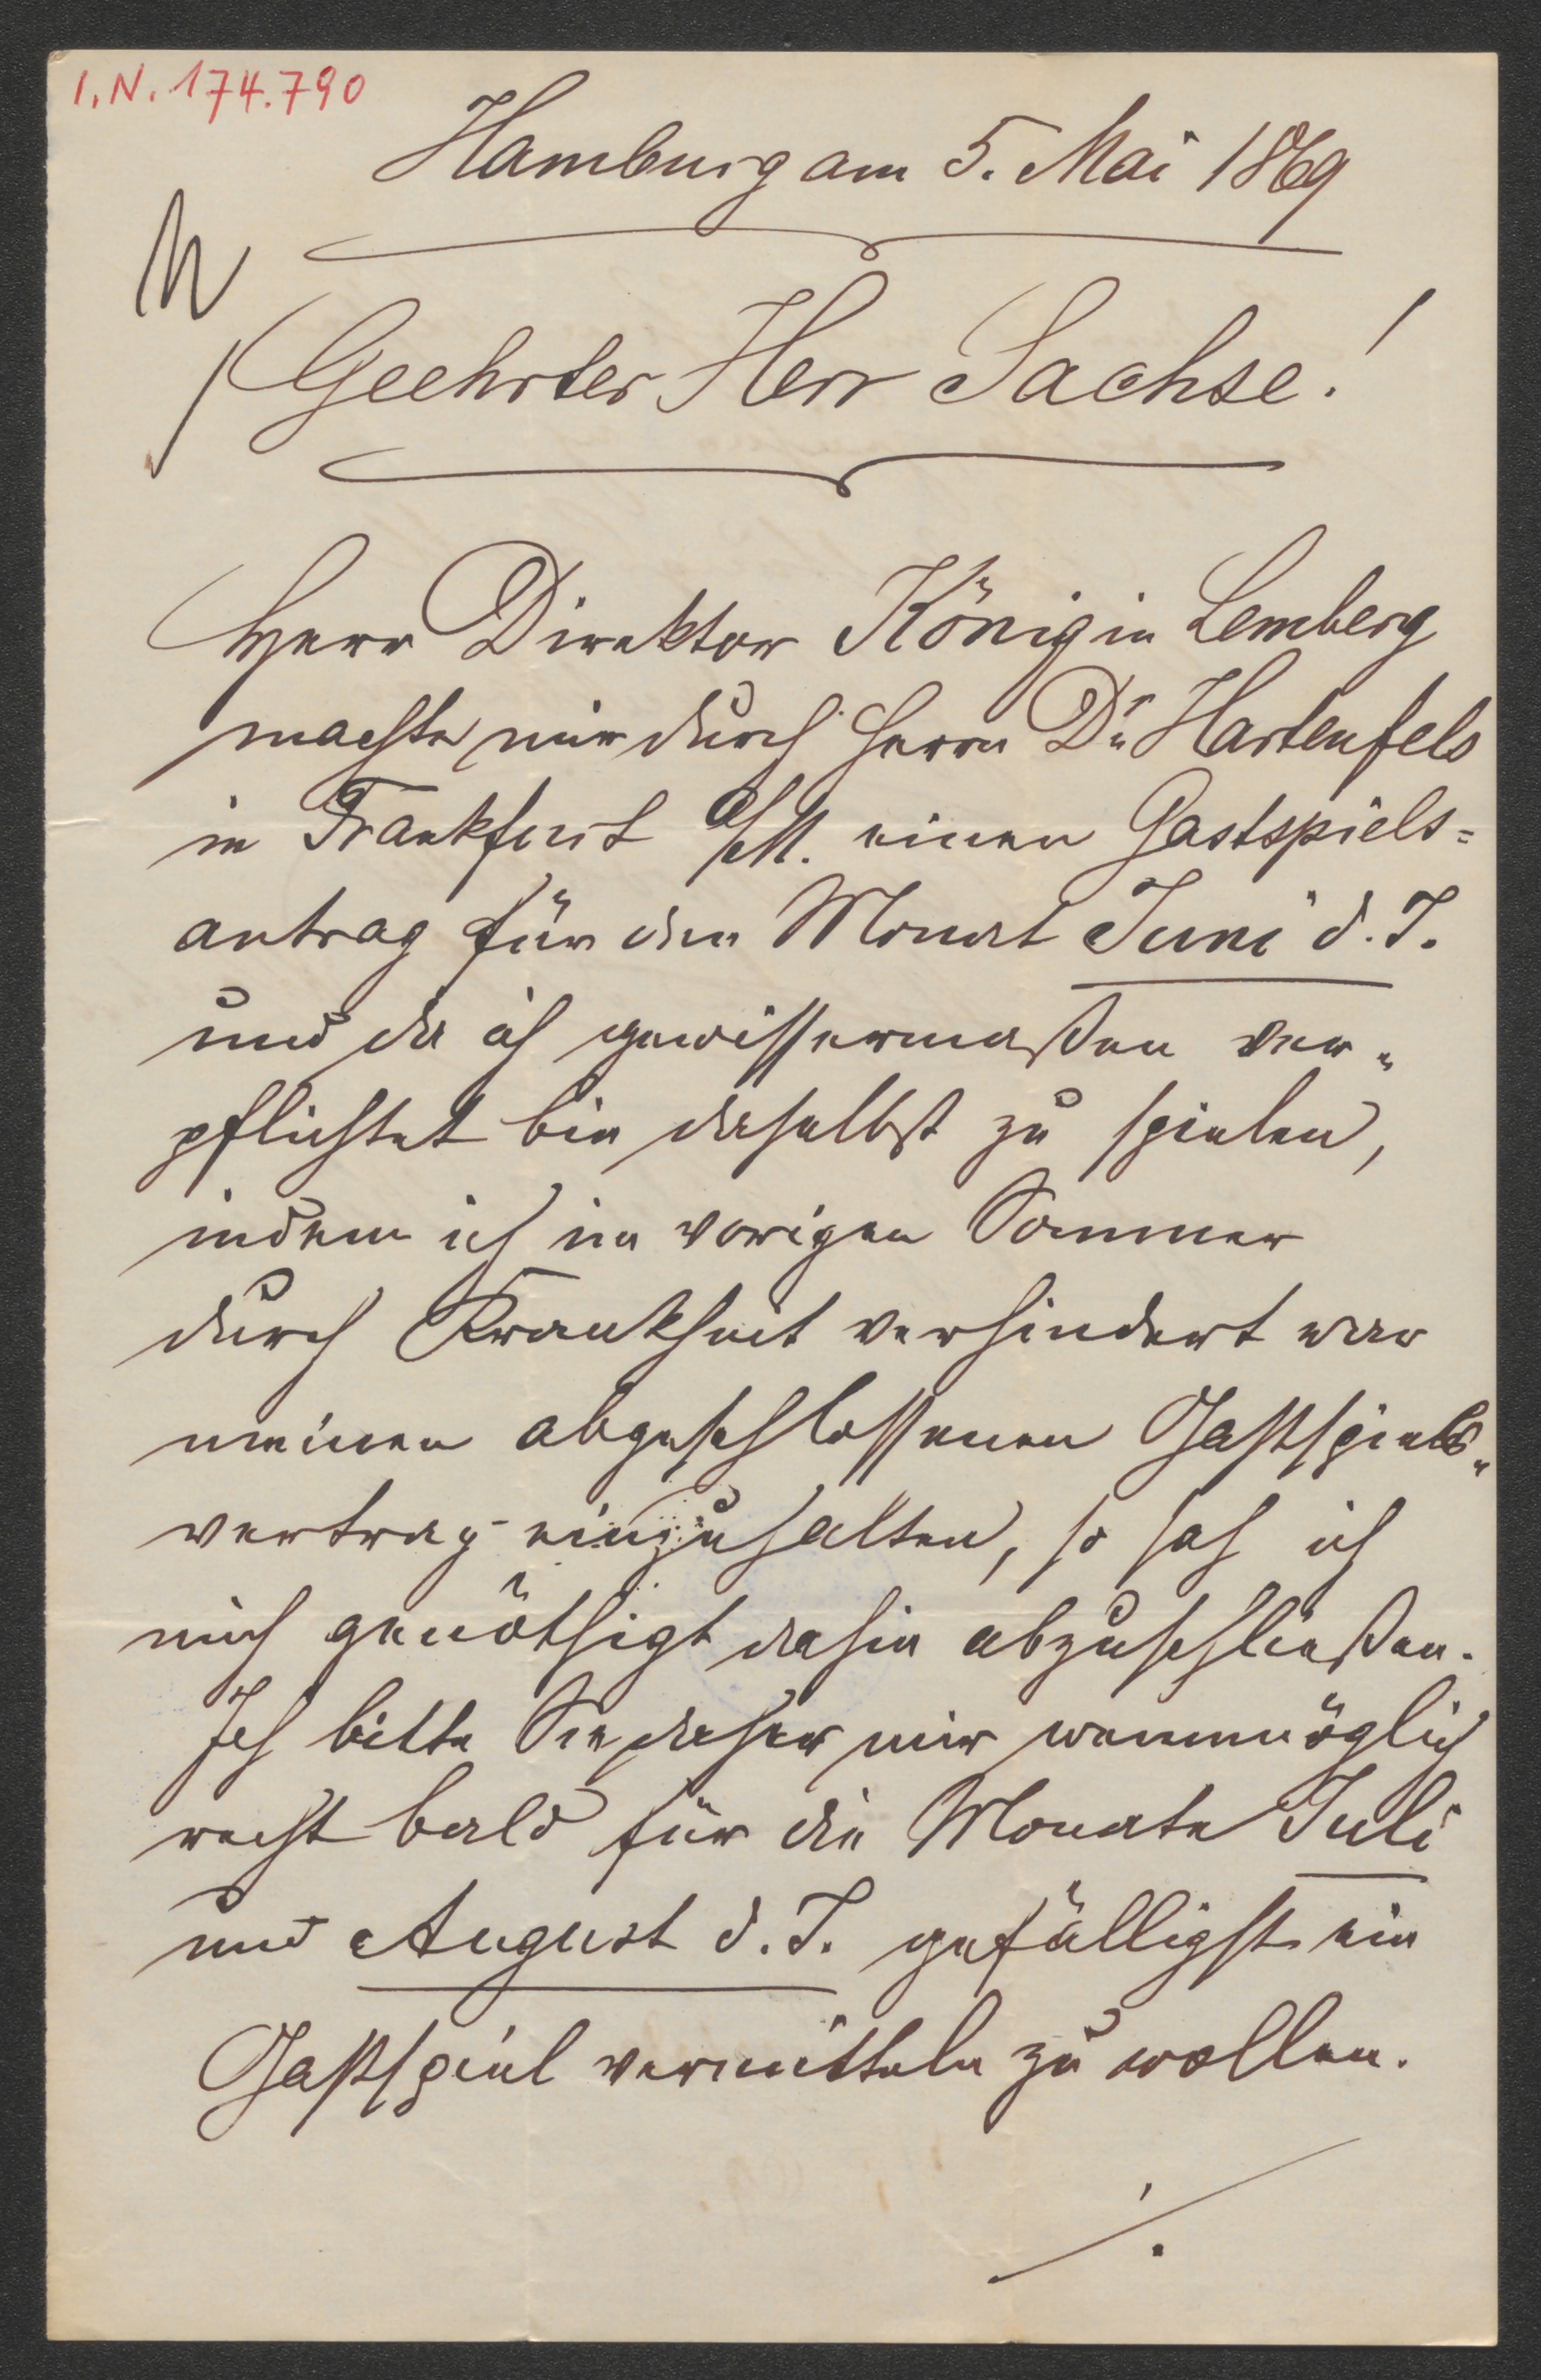 I.N. 174.790
Hamburg am 5. Mai 1869
Geehrter Herr Sachse!
Herr Direktor König in Lemberg
machte mir durch Herrn Dr. Hartenfels
in Frankfurt a/M. einen Gastspiels=
antrag für den Monat Juni d. J.
und da ich gewissermaßen ver=
pflichtet bin daselbst zu spielen,
indem ich im vorigen Sommer
durch Krankheit verhindert war
meinen abgeschlossenen Gastspiels=
vertrag einzuhalten, so sah ich
mich genöthigt dahin abzuschließen.
Ich bitte Sie daher mir wenmöglich
recht bald für die Monate Juli
und August d. J. gefälligst ein
Gastspiel vermitteln zu wollen.
./.